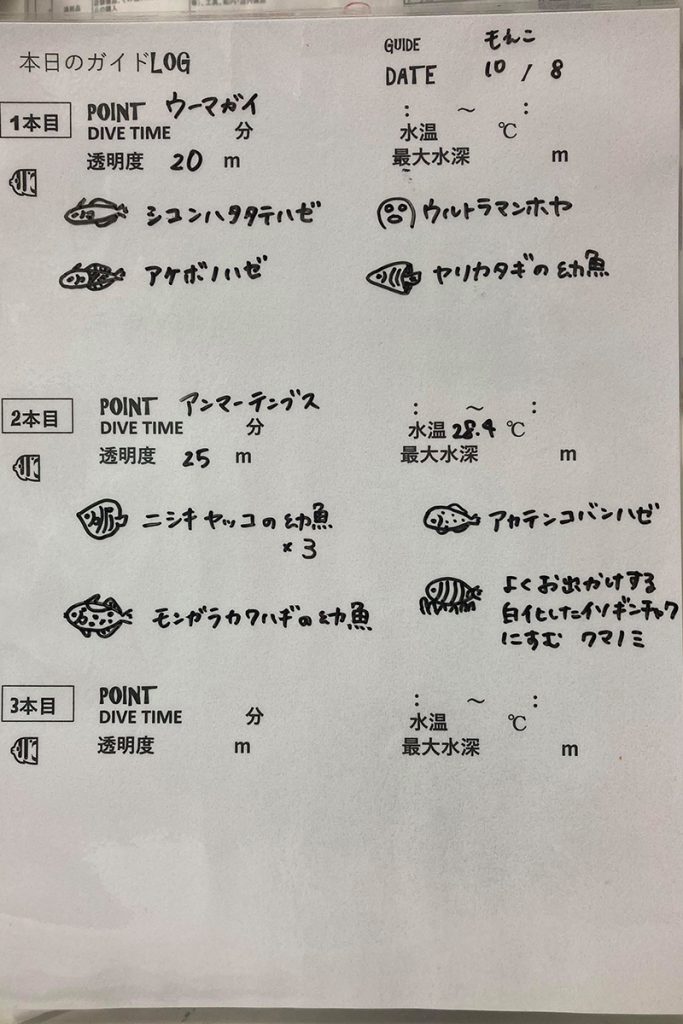 本日のガイドLOG
GUIDE もえこ
DATE 10 / 8
1本目
POINT ウーマガイ : ～ :
DIVE TIME 分 水温 ℃
透明度 20 m 最大水深 m
シコンハタタテハゼ ウルトラマンホヤ
アケボノハゼ ヤリカタギの幼魚
2本目
POINT アンマーテンブス : ～ :
DIVE TIME 分 水温 28.4 ℃
透明度 25 m 最大水深 m
ニシキヤッコの幼魚 アカテンコバンハゼ
×3
モンガラカワハギの幼魚 よくお出かけする
白化したイソギンチャク
にすむ クマノミ
3本目
POINT : ～ :
DIVE TIME 分 水温 ℃
透明度 m 最大水深 m